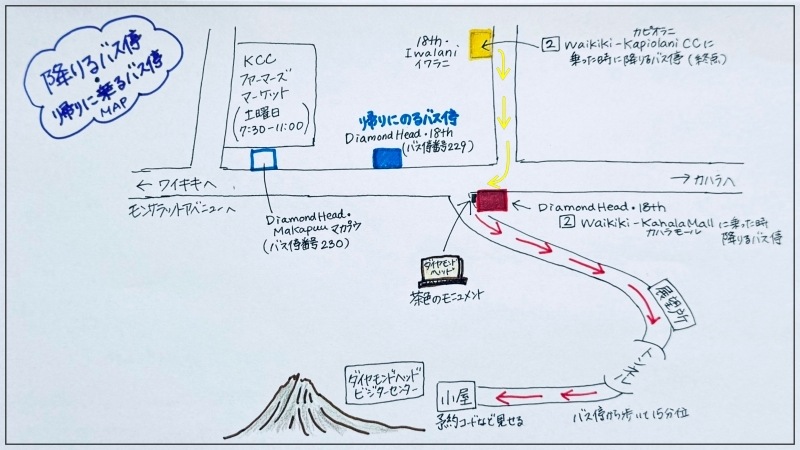 降りるバス停
・
帰りに乗るバス停
MAP
KCC
ファーマーズ
マーケット
(土曜日
7:30-11:00)
18th・
Iwalani
イワラニ
カピオラニ
2 Waikiki-Kapiolani CCに
乗った時に降りるバス停(終点)
帰りにのるバス停
DiamondHead・18th
(バス停番号229)
← ワイキキへ
→ カハラへ
モンサラットアベニューへ
DiamondHead・
Makapuu マカプウ
(バス停番号230)
DiamondHead・18th
2 Waikiki-KahalaMallに乗った時
カハラモール
降りるバス停
ダイヤモンド
ヘッド
茶色のモニュメント
展望所
トンネル
ダイヤモンドヘッド
ビジターセンター
小屋
予約コードなど見せる
バス停から歩いて15分位